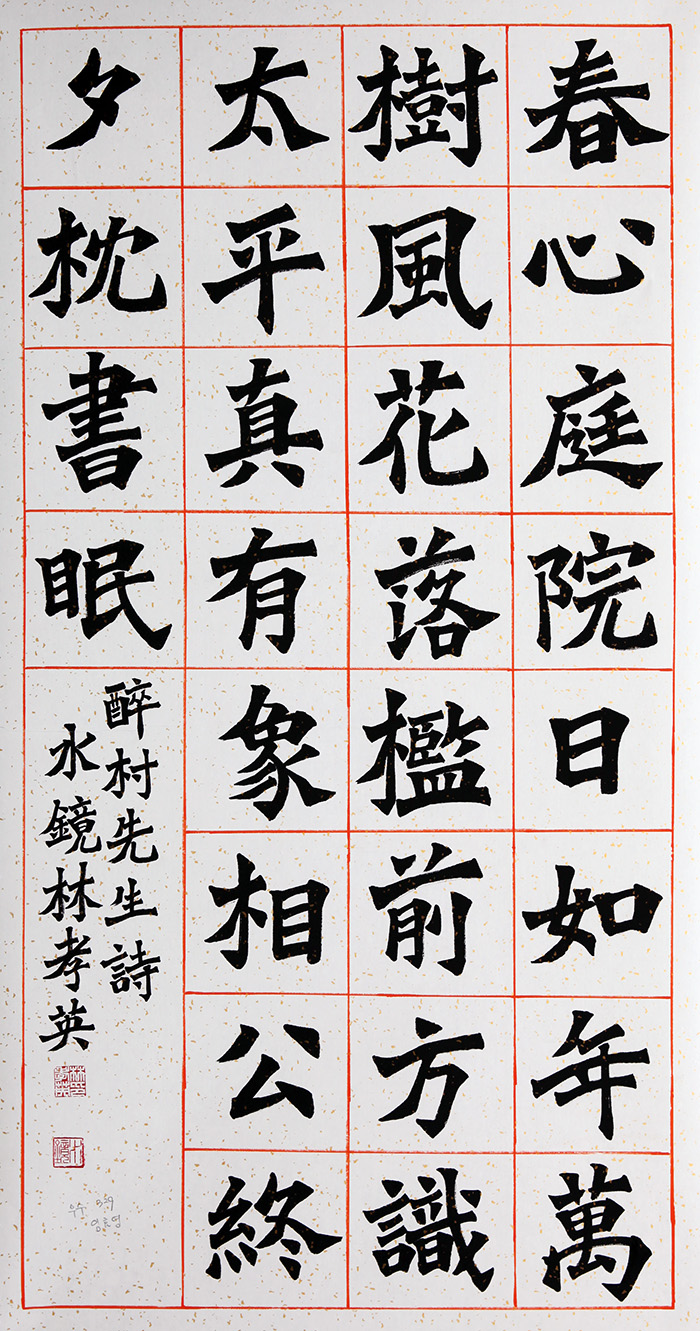 春心庭院日如年萬
樹風花落檻前方識
太平真有象相公終
夕枕書眠
醉村先生詩
水鏡林孝英
우수
임효영